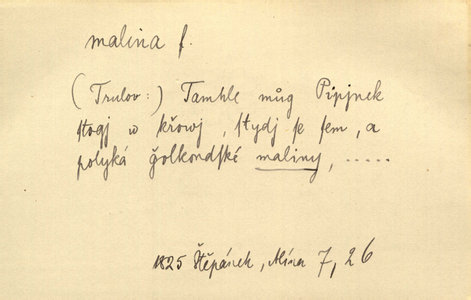 malina f.
(Trulov:) Tamhle můg Pipjnek
stogj w křowj, stydj se sem, a
polyká ğolkondské maliny, .....
1825 Štěpánek, Alína 7, 26